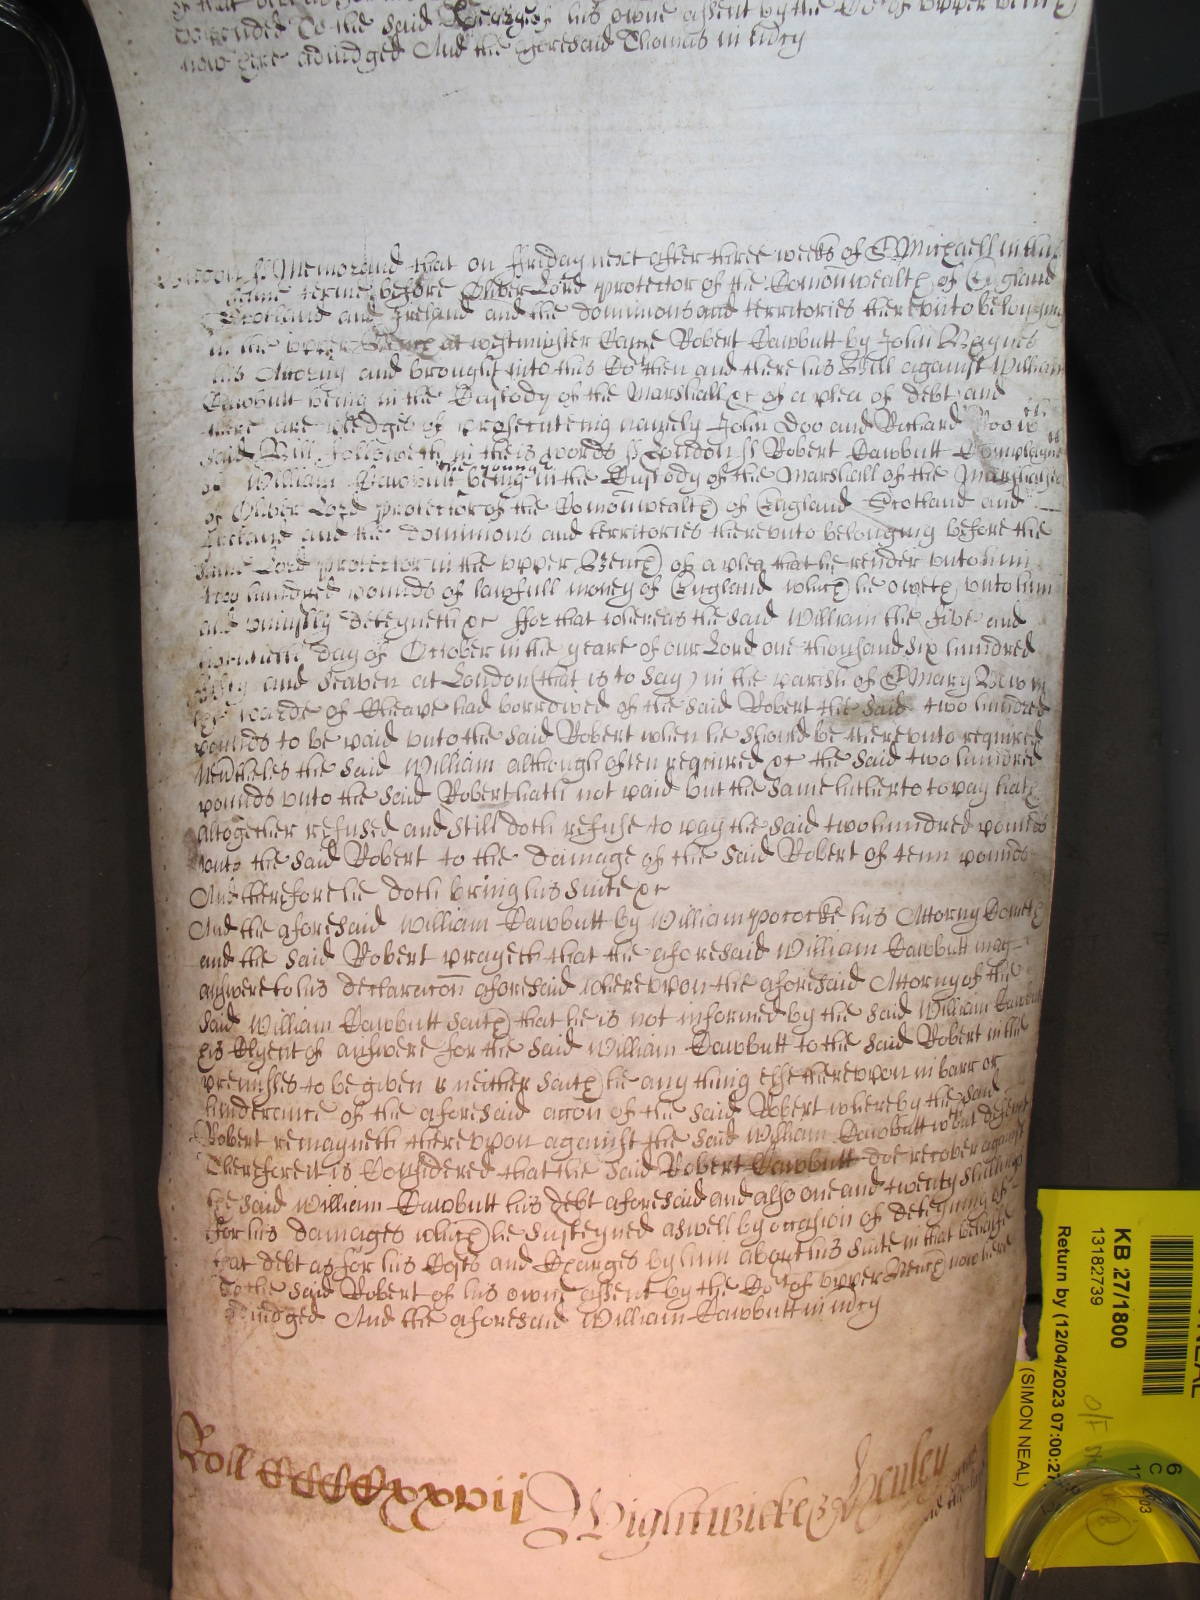 of that
to the said of his owne assent by the Co.rt of upper Bench
now here adiudged And the aforesaid Thomas in m̄cy
London ss Memorand that on ffriday next after three weeks of St Michaell in this
same terme before Oliver Lord protector of the Com̄onwealth of England
Scotland and Ireland and the dominions and territories therevnto belonging
in the vpper Bench at westminster Came Robert Cawbutt by John Baynes
his Attorny and brought into this Co.rt then and there his Bill against William
Cawbutt being in the Custody of the Marshall &c of a plea of debt and
there are pledges of prosecuteing namely John Doo and Richard Roo wch
said Bill followeth in theis words ss London ss Robert Cawbutt Complayneth
of William Cawbutt the younger being in the Custody of the Marshall of the Marshalsea
of Oliver Lord protector of the Com̄onwealth of England Scotland and
Ireland and the dominions and territories therevnto belonging before the
same Lord protector in the vpper Bench of a plea that he render vnto him
two hundred pounds of lawfull money of England which he oweth vnto him
and vniustly deteyneth &c ffor that whereas the said William the five and
twentieth day of October in the yeare of our Lord one thousand six hundred
fifty and seaven at London (that is to say) in the parish of St Mary Bow in
the warde of Cheape had borrowed of the said Robert the said two hundred
pounds to be paid vnto the said Robert when he should be therevnto required
Nev̄theles the said William although often required &c the said two hundred
pounds vnto the said Robert hath not paid but the same hitherto to pay hath
altogether refused and still doth refuse to pay the said two hundred pounds
vnto the said Robert to the damage of the said Robert of tenn pounds
And therefore he doth bring his suite &c
And the aforesaid William Cawbutt by William pococke his Attorny Cometh
and the said Robert prayeth that the aforesaid William Cawbutt may
answere to his declaracon aforesaid wherevpon the aforesaid Attorny of the
said William Cawbutt saith that he is not informed by the said William Cawbutt
his Clyent of answere for the said William Cawbutt to the said Robert in the
premisses to be given & neither saith he any thing else therevpon in barr or
hinderance of the aforesaid accōn of the said Robert whereby the said
Robert remayneth therevpon against the said William Cawbutt wthout defence
Therefore it is Considered that the said Robert Cawbutt doe recover against
the said William Cawbutt his debt aforesaid and also one and twenty shillings
for his damages which he susteyned aswell by occasion of deteyning of
that debt as for his Costs and Charges by him about his suite in that behalfe
To the said Robert of his owne assent by the Co.rt of vpper Bench now here
adiudged And the aforesaid William Cawbutt in m̄cy
Roll CCCCCxxvij Wightwicke & Henley
KB 27/1800
13182739
Return by (12/04/2023 07:00:27
(SIMON NEAL)